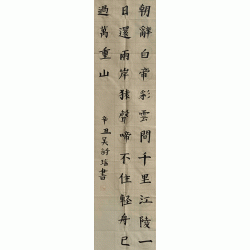 朝辭白帝彩雲間千里江陵一
日還兩岸猿聲啼不住輕舟已
過萬重山
辛丑吴書